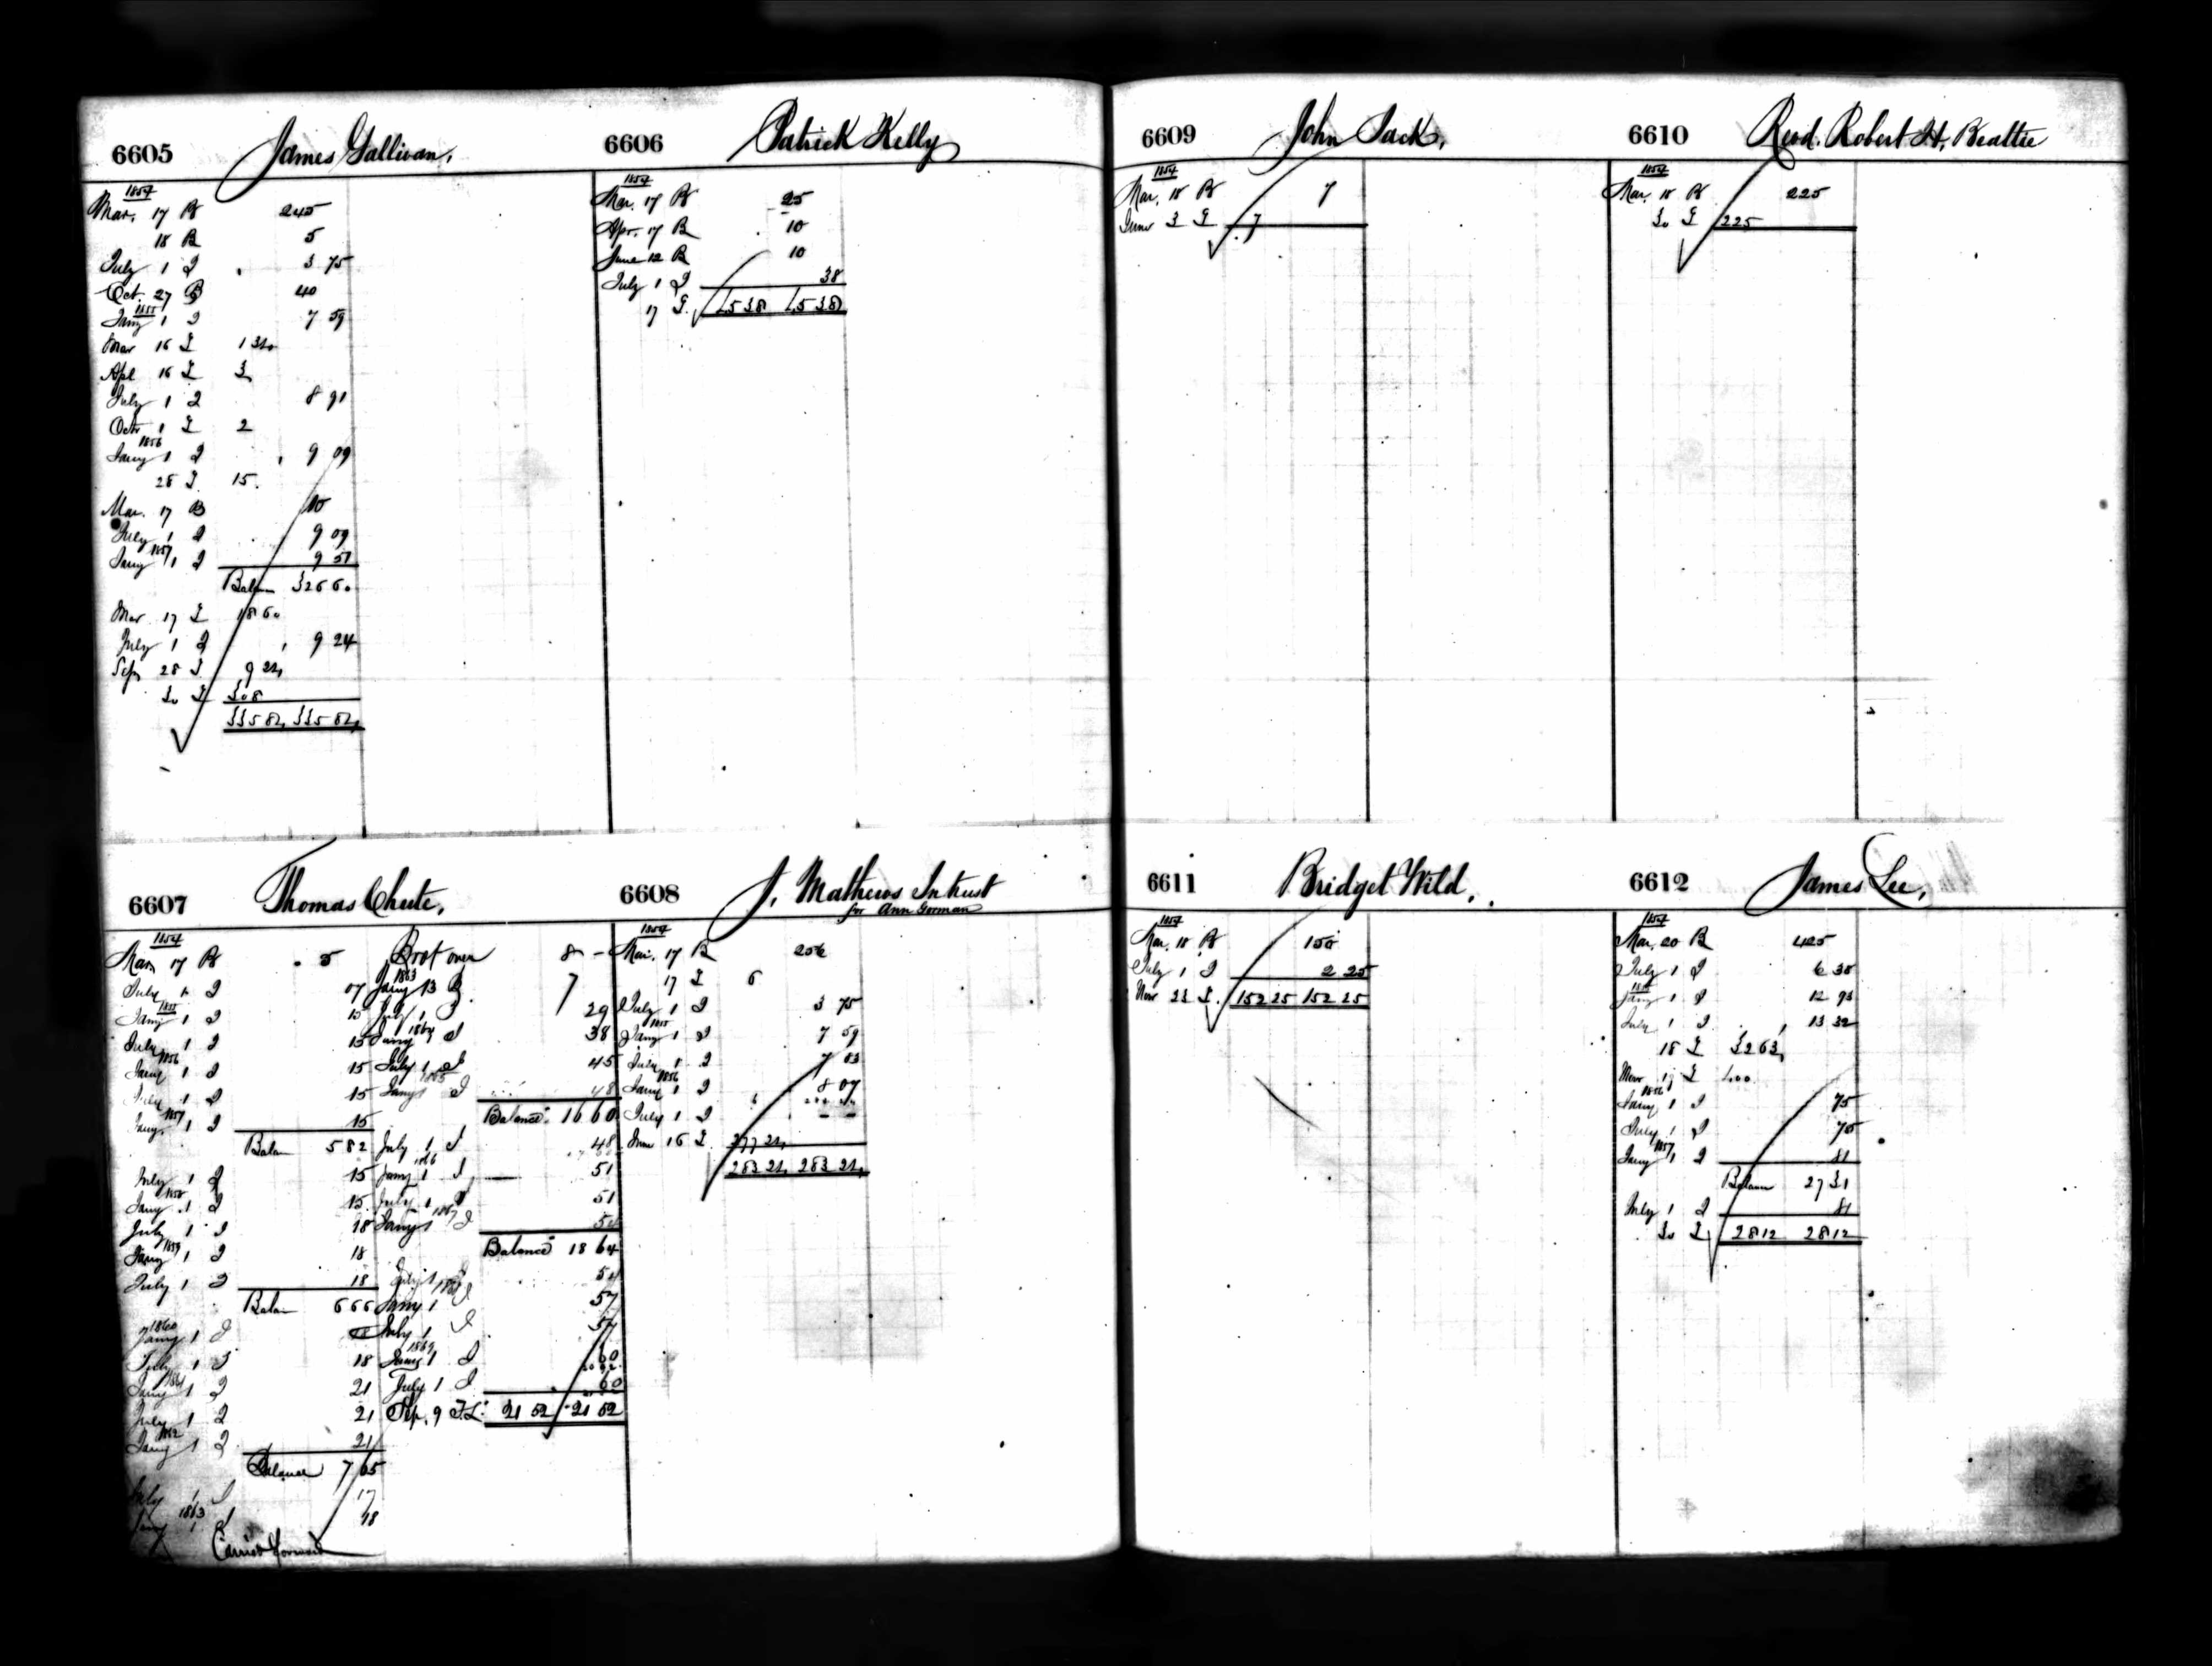 6605 James Sullivan,
1854
Mar. 17 B 245
18 B 5
July 1 I 3 75
Oct. 27 B 40
1855
Jany 1 I 7 59
Mar 16 L 1 34
Apl 16 L 3
July 1 I 8 91
Octr 1 L 2
1856
Jany 1 I 9 09
28 L 15.
Mar. 17 B 10
July 1 I 9 09
1857
Jany 1 I 9 51
Balan 326 60
Mar 17 L 18 60
July 1 I 9 24
Sep 28 L 9 24
30 L 308
335 84 335 84
6606 Patrick Kelly
1854
Mar. 17 B 25
Apr. 17 B 10
June 12 B 10
July 1 I 38
17 L. 45 38 45 38
6607 Thomas Chute,
1854
Mar 17 B 5
July 1 I 07
1855
Jany 1 I 15
July 1 I 15
1856
Jany 1 I 15
July 1 I 15
1857
Jany 1 I 15
Balan 5 82
July 1 I 15
1858
Jany 1 I 15
July 1 I 18
1859
Jany 1 I 18
July 1 I 18
Balan 6 66
1860
Jany 1 I
July 1 I 18
1861
Jany 1 I 21
July 1 I 21
1862
Jany 1 I 21
Balance 7 65
July 1 I 17
1863
Jany 1 I 18
Carried Forward
Brot over 8 -
1863
Jany 13 B 7
July 1 I 29
1864
Jany 1 I 38
July 1 I 45
1865
Jany 1 I 48
Balance 16 60
July 1 I 48
1866
Jany 1 I 51
July 1 I 51
1867
Jany 1 I 54
Balance 18 64
July 1 I 54
1868
Jany 1 I 57
July 1 I 57
1869
Jany 1 I 60
July 1 I 60
Sep. 9 L. 21 52 21 52
6608 J. Mathews Intrust
for Ann Gorman
1854
Mar. 17 B 256
17 L 6
July 1 I 3 75
1855
Jany 1 I 7 59
July 1 I 7 83
1856
Jany 1 I 8 07
July 1 I - -
June 16 L 277 24
283 24 283 24
6609 John Jack,
1854
Mar. 18 B 7
June 3 L 7
6610 Revd. Robert H. Beattie
1854
Mar. 18 B 225
30 L 225
6611 Bridget Wild,
1854
Mar. 18 B 150
July 1 I 2 25
Nov 23 L. 152 25 152 25
6612 James Lee,
1854
Mar. 20 B 425
July 1 I 6 38
1855
Jany 1 I 12 93
July 1 I 13 32
18 L 32 63
Nov L 400
1856
Jany 1 I 75
July 1 I 75
1857
Jany 1 I 81
Balan 27 31
July 1 I 81
30 L 28 12 28 12